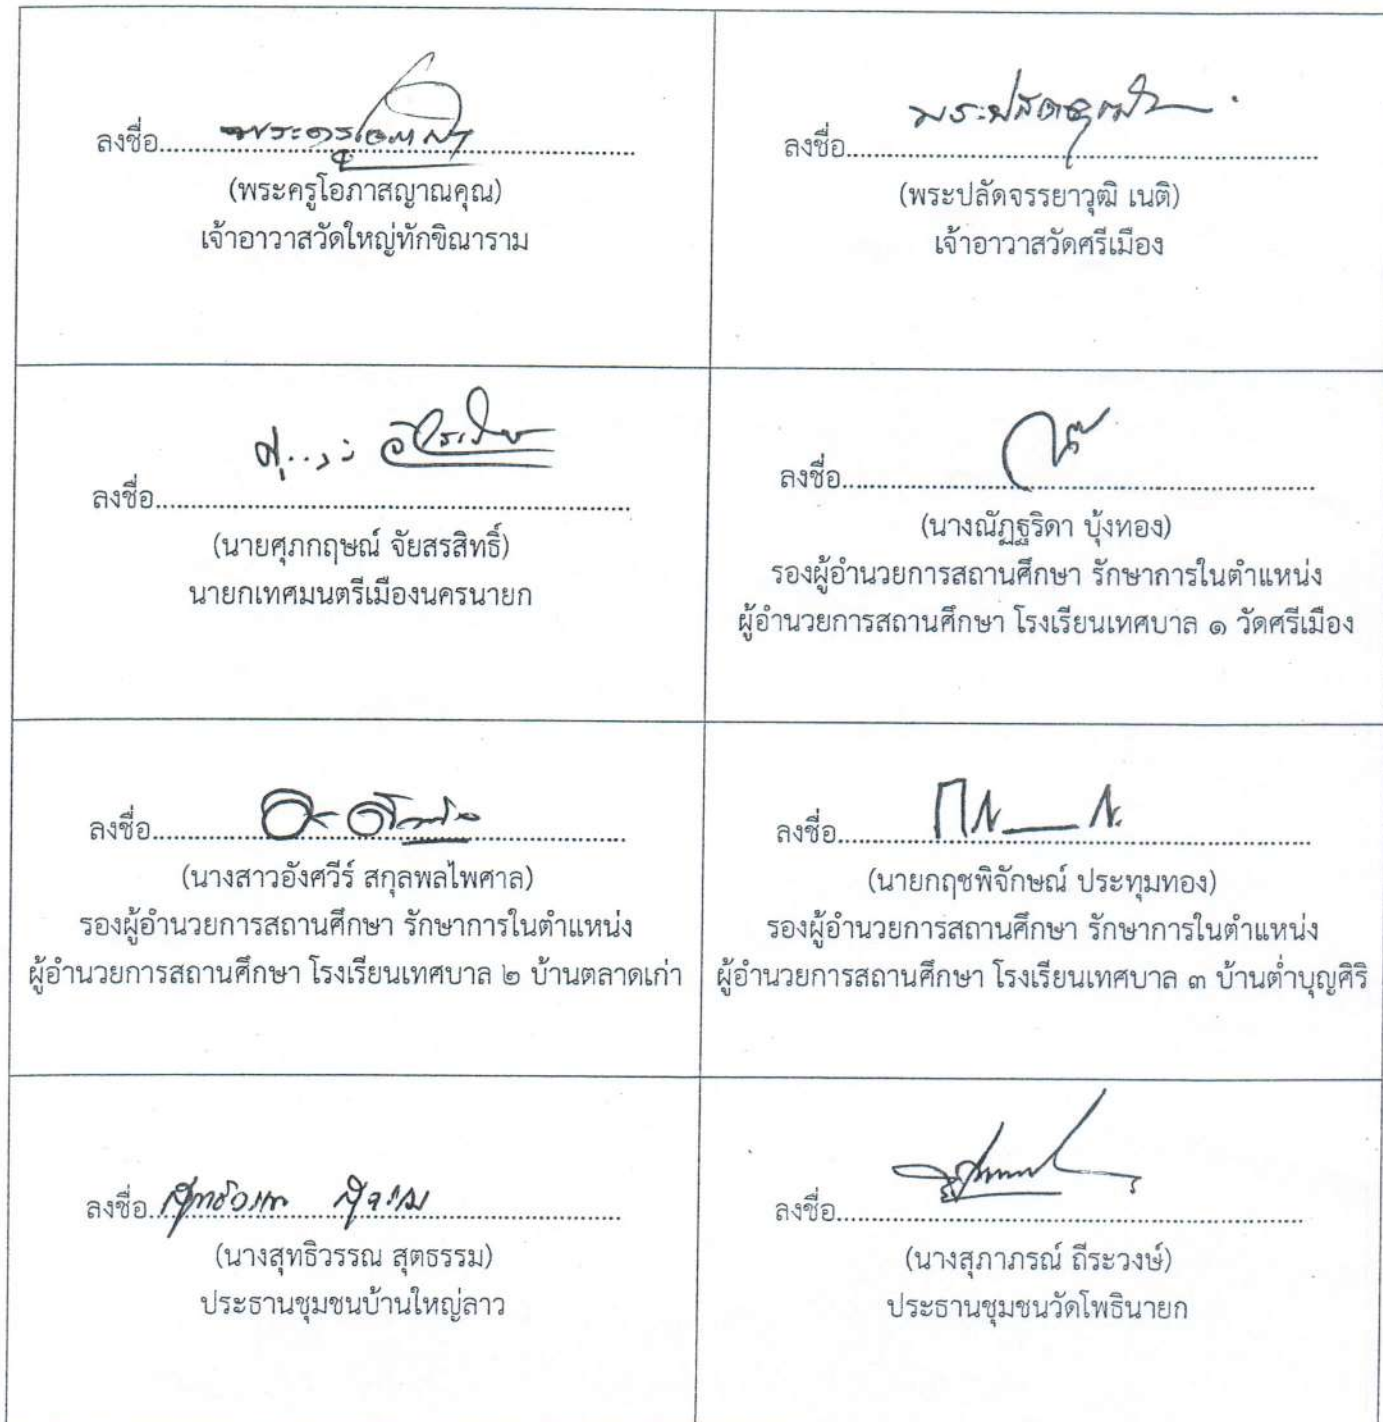 ลงชื่อ
(พระครูโอภาสญาณคุณ)
เจ้าอาวาสวัดใหญ่ทักขิณาราม
ลงชื่อ
(พระปลัดจรรยาวุฒิ เนติ)
เจ้าอาวาสวัดศรีเมือง
ลงชื่อ
(นายศุภกฤษณ์ จัยสรสิทธิ์)
นายกเทศมนตรีเมืองนครนายก
ลงชื่อ
(นางณัฏฐริดา บุ้งทอง)
รองผู้อำนวยการสถานศึกษา รักษาการในตำแหน่ง
ผู้อำนวยการสถานศึกษา โรงเรียนเทศบาล ๑ วัดศรีเมือง
ลงชื่อ
(นางสาวอังศวีร์ สกุลพลไพศาล)
รองผู้อำนวยการสถานศึกษา รักษาการในตำแหน่ง
ผู้อำนวยการสถานศึกษา โรงเรียนเทศบาล ๒ บ้านตลาดเก่า
ลงชื่อ
(นายกฤชพิจักษณ์ ประทุมทอง)
รองผู้อำนวยการสถานศึกษา รักษาการในตำแหน่ง
ผู้อำนวยการสถานศึกษา โรงเรียนเทศบาล ๓ บ้านต่ำบุญศิริ
ลงชื่อ
(นางสุทธิวรรณ สุตธรรม)
ประธานชุมชนบ้านใหญ่ลาว
ลงชื่อ
(นางสุภาภรณ์ ถีระวงษ์)
ประธานชุมชนวัดโพธินายก